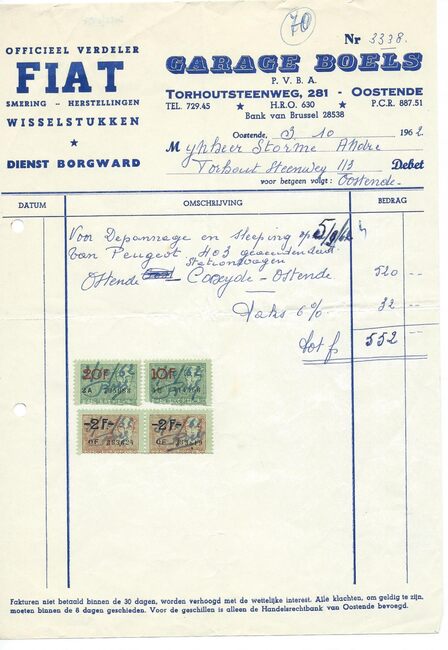 70
OFFICIEEL VERDELER
FIAT
SMERING - HERSTELLINGEN
WISSELSTUKKEN
★
DIENST BORGWARD
Nr 3338.
GARAGE BOELS
P.V.B.A.
TORHOUTSTEENWEG, 281 - OOSTENDE
TEL. 729.45 ★ H.R.O. 630 ★ P.C.R. 887.51
Bank van Brussel 28538
Oostende, 3 10 1962
Mynheer Storme André
Torhout Steenweg 113 Debet
voor hetgeen volgt: Oostende
DATUM OMSCHRIJVING BEDRAG
Voor Depannage en sleeping op 5/9/62
van Peugeot 403
Stationwagen
Ostende Coxyde - Ostende 520 --
Taks 6% 32 --
tot f 552
20F 10F
-2F- -2F-
Fakturen niet betaald binnen de 30 dagen, worden verhoogd met de wettelijke interest. Alle klachten, om geldig te zijn,
moeten binnen de 8 dagen geschieden. Voor de geschillen is alleen de Handelsrechtbank van Oostende bevoegd.